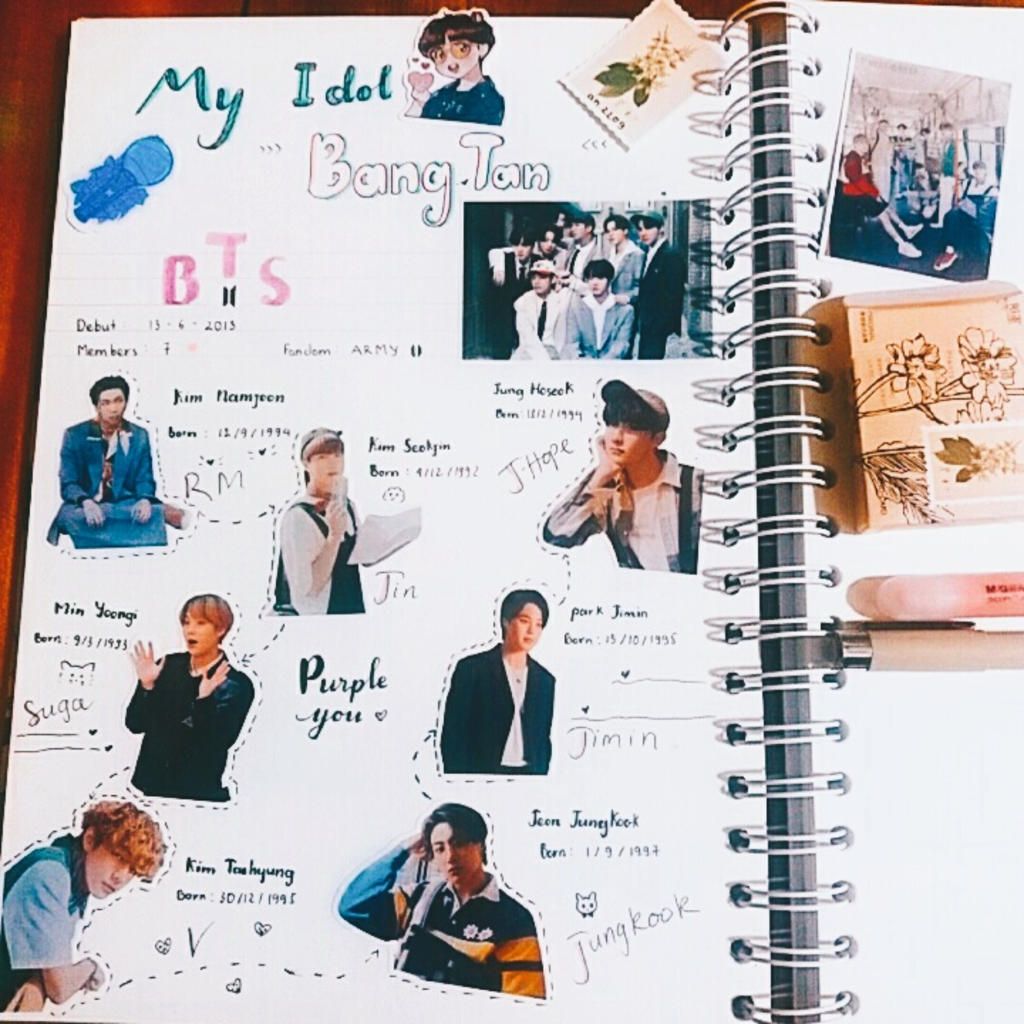 My Idol
Bang Tan
BTS
Debut : 13 - 6 - 2013
Members : 7
Fandom : ARMY
Kim Namjoon
Born : 12/9/1994
RM
Kim Seokjin
Born : 4/12/1992
Jin
Jung Hoseok
Born : 18/2/1994
J-Hope
Min Yoongi
Born : 9/3/1993
Suga
Purple
you
park Jimin
Born : 13/10/1995
Jimin
Kim Taehyung
Born : 30/12/1995
V
Jeon Jungkook
Born : 1/9/1997
Jungkook